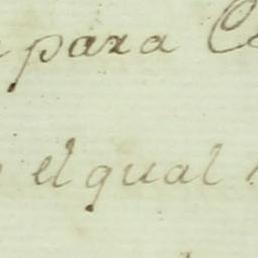 para
el qual